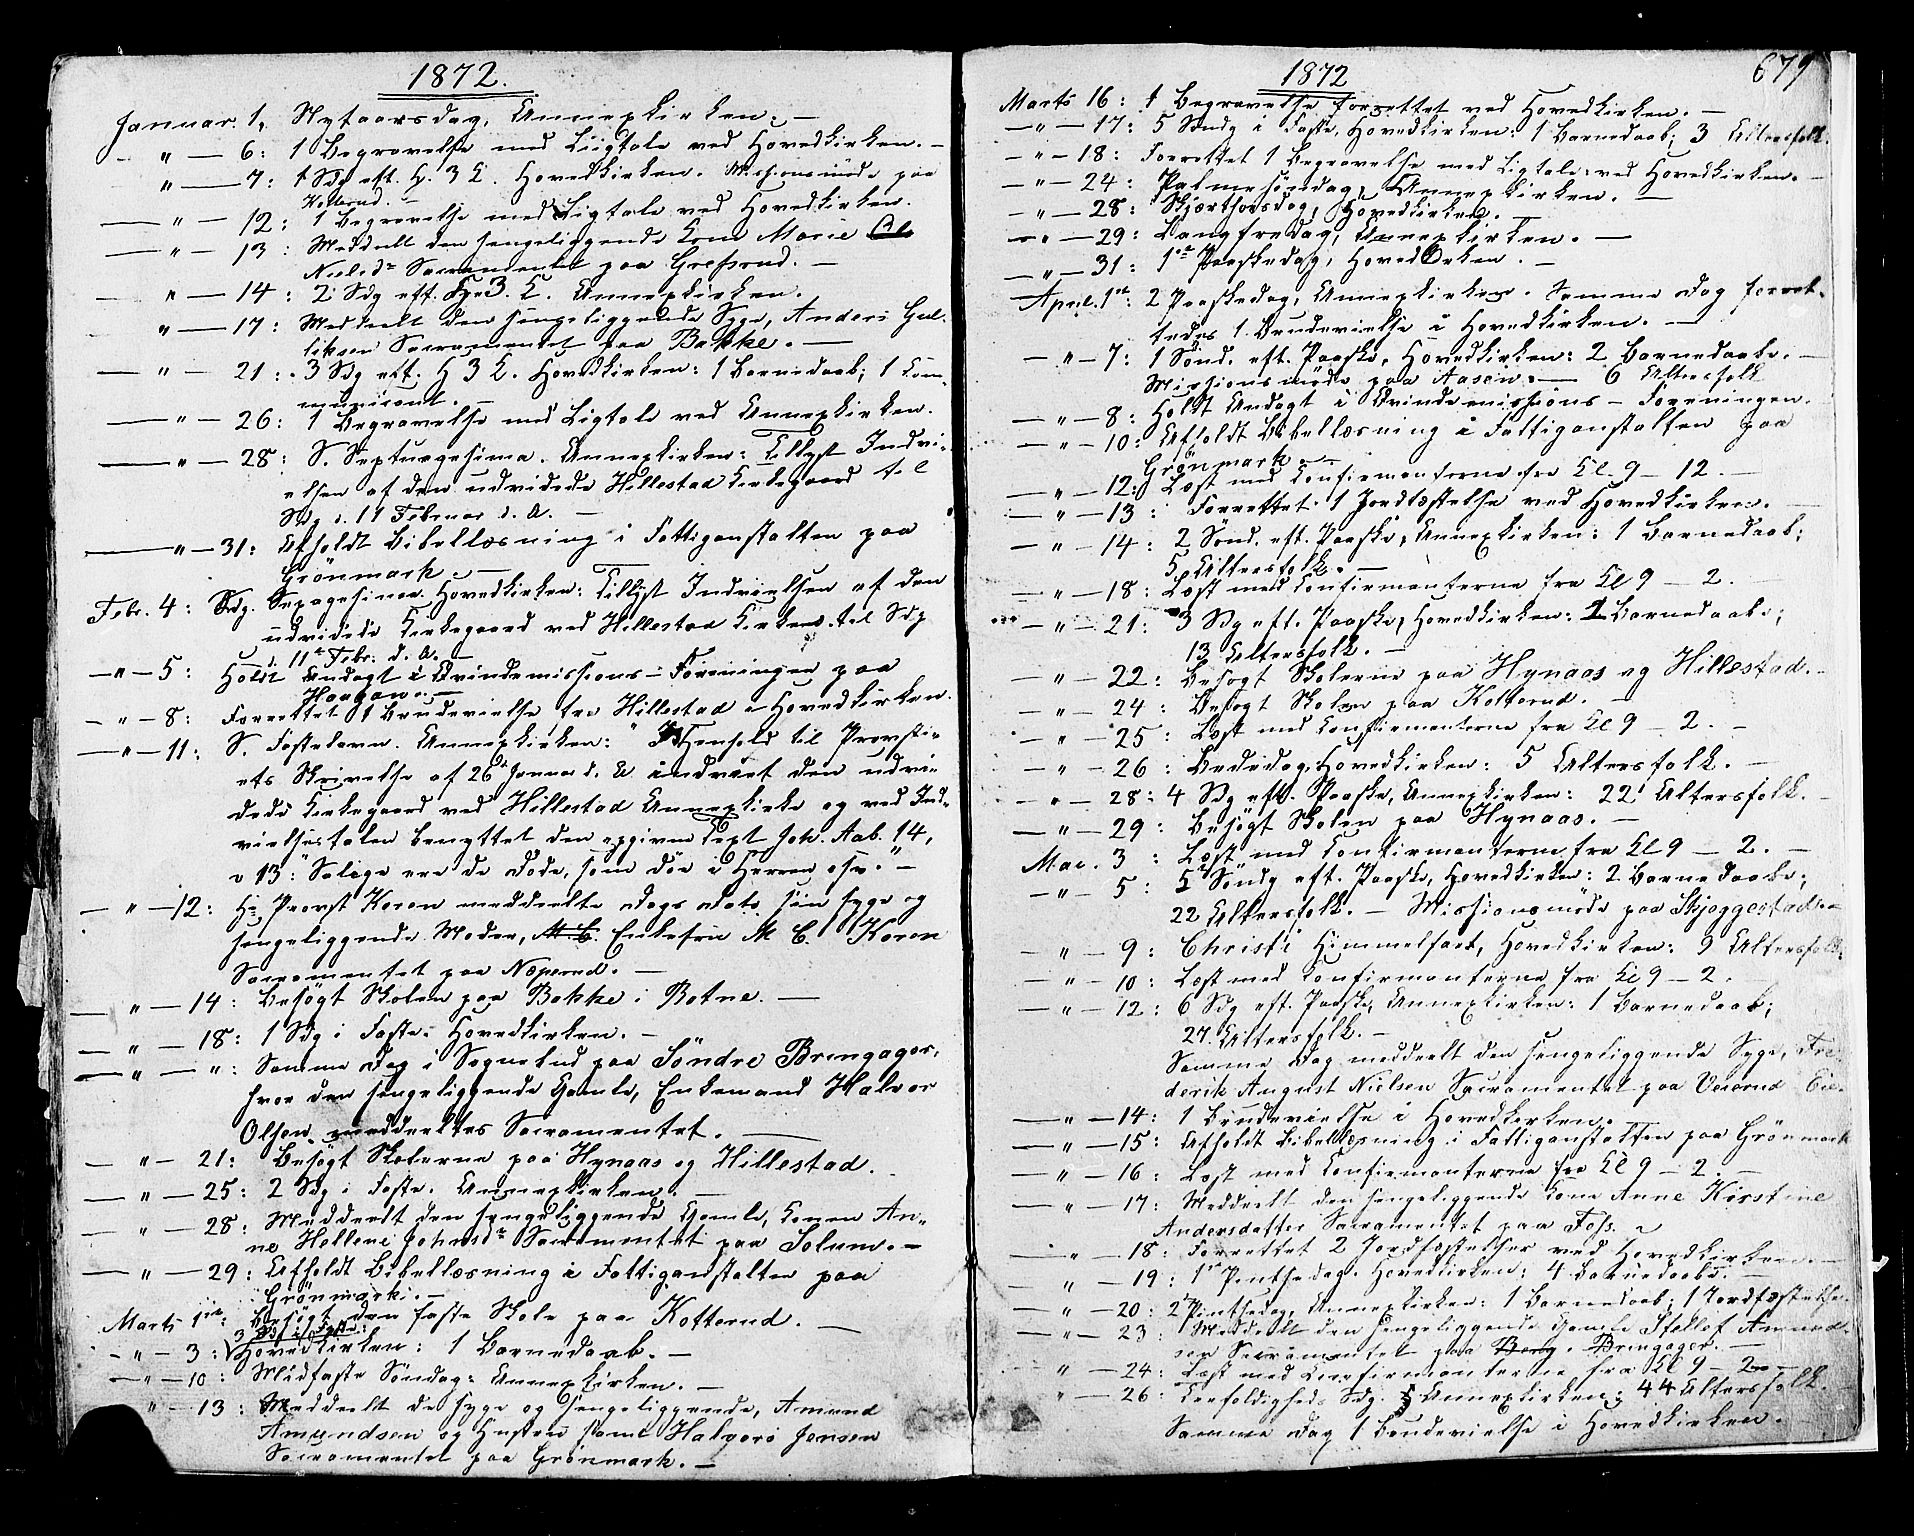 1872.
Januar. 1, Nytaarsdag, Annexkirken. —
— " — 6: 1 Begravelse med Liigtale ved Hovedkirken. —
" — 7: 1 Sdg eft. H. 3 K. Hovedkirken. Missionsmöde paa
Kotterud. —
— " — 12: 1 Begravelse med Ligtale ved Hovedkirken.
— " — 13: Meddelt den sengeliggende Kone Marie
Nielsd. Sacramentet paa Grefsrud. —
— " — 14: 2 Sdg eft. H. 3. K. Annexkirken.
" — 17: Meddeelt den sengeliggende Syge, Anders Gul-
liksen Sacramentet paa Bakke. —
— " — 21: 3 Sdg eft. H 3 K. Hovedkirken: 1 Barnedaab; 1 Com-
municant. —
— " — 26: 1 Begravelse med Ligtale ved Annexkirken.
— " — 28: S. Septuagesima. Annexkirken: Tillyst Indvi-
elsen af den udvidede Hillestad Kirkegaard til
Sdg d. 11 Februar d. A. —
— " — 31: Afholdt Bibellæsning i Fattiganstalten paa
Grönmark. —
Febr. 4: Sdg. Sexagesima. Hovedkirken: Tillyst Indvielsen af den
udvidede Kirkegaard ved Hillestad Kirke til Sdg
d. 11te Febr. d. A. —
— " — 5: Holdt Andagt i Qvindemissions-Foreningen paa
Haagan. —
— " — 8: Forrettet 1 Brudevielse fra Hillestad i Hovedkirken.
— " — 11: S. Fastelavn. Annexkirken: I Henhold til Provsti-
ets Skrivelse af 26de Januar d. A. indviet den udvi-
dede Kirkegaard ved Hillestad Annexkirke og ved Ind-
vielsestalen benyttet den opgivne Text Joh. Aab. 14,
v 13: "Salige ere de Döde, som döe i Herren osv." —
— " — 12: Hr. Provst Koren meddeelte Dags Dato sin syge og
sengeliggende Moder, M. C. Enkefru M C. Koren
Sacramentet paa Næperud. —
— " — 14: Besögt Skolen paa Bakke i Botne. —
— " — 18: 1 Sdg i Faste. Hovedkirken. —
— " — ": Samme Dag i Sognebud paa Söndre Bringager,
hvor den sengeliggende Gamle, Enkemand Halvor
Olsen meddeeltes Sacramentet. —
— " — 21: Besögt Skolerne paa Hynaas og Hillestad.
— " — 25: 2 Sdg i Faste. Annexkirken. —
— " — 28: Meddeelt den sengeliggende Gamle, Konen An-
ne Hellene Johnsd. Sacramentet paa Solum. —
— " — 29: Afholdt Bibellæsning i Fattiganstalten paa
Grönmark. —
Marts 1ste: Besögt den faste Skole paa Kotterud. —
3 Sdg i Faste:
— " — 3: Hovedkirken: 1 Barnedaab. —
— " — 10: Midfaste Söndag: Annexkirken. —
" — 13: Meddeelt de syge og sengeliggende, Amund
Amundsen og Hustru samt Halvors Jensen
Sacramentet paa Grönmark. —
1872
679
Marts 16: 1 Begravelse forrettet ved Hovedkirken. —
— " — 17: 5 Sndg i Faste, Hovedkirken: 1 Barnedaab; 3 Altersfolk.
— " — 18: Forrettet 1 Begravelse med Ligtale ved Hovedkirken. —
— " — 24: Palmesöndag, Annexkirken. —
— " — 28: Skjærthorsdag, Hovedkirken. —
— " — 29: Langfredag, Annexkirken. —
— " — 31: 1ste Paaskedag, Hovedkirken. —
April. 1ste: 2 Paaskedag, Annexkirken. Samme Dag forret-
tedes 1 Brudevielse i Hovedkirken. —
— " — 7: 1 Sönd. eft. Paaske, Hovedkirken: 2 Barnedaabe. —
Missionsmöde paa Aasen. — 6 Altersfolk
— " — 8: Holdt Andagt i Qvindemissions-Foreningen.
— " — 10: Afholdt Bibellæsning i Fattiganstalten paa
Grönmark. —
— " — 12: Læst med Confirmanterne fra Kl. 9 – 12. —
— " — 13: Forrettet 1 Jordfæstelse ved Hovedkirken. —
— " — 14: 2 Sönd. eft. Paaske, Annexkirken: 1 Barnedaab;
5 Altersfolk. —
— " — 18: Læst med Confirmanterne fra Kl 9 – 2. —
— " — 21: 3 Sdg eft. Paaske, Hovedkirken: 1 Barnedaab;
13 Altersfolk. —
— " — 22: Besögt Skolerne paa Hynaas og Hillestad. —
— " — 24: Besögt Skolen paa Kotterud. —
— " — 25: Læst med Confirmanterne fra Kl 9 – 2. —
— " — 26: Bededag, Hovedkirken: 5 Altersfolk. —
— " — 28: 4 Sdg eft. Paaske, Annexkirken: 22 Altersfolk. —
— " — 29: Besögt Skolen paa Hynaas. —
Mai. 3: Læst med Confirmanterne fra Kl 9 – 2. —
— " — 5: 5 Söndg eft. Paaske, Hovedkirken: 2 Barnedaabe;
22 Altersfolk. — Missionsmöde paa Skjeggestad. —
— " — 9: Christi Himmelfart, Hovedkirken: 9 Altersfolk.
— " — 10: Læst med Confirmanterne fra Kl 9 – 2. —
— " — 12: 6 Sdg eft. Paaske, Annexkirken: 1 Barnedaab;
27 Altersfolk. —
Samme Dag meddeelt den sengeliggende Syge, Fre-
derik August Nielsen Sacramentet paa Veierud
— " — 14: 1 Brudevielse i Hovedkirken. —
— " — 15: Afholdt Bibellæsning i Fattiganstalten paa Grönmark
— " — 16: Læst med Confirmanterne fra Kl 9 – 2. —
" — 17: Meddeelt den sengeliggende Kone Anne Kirstine
Andersdatter Sacramentet paa Foss. —
— " — 18: Forrettet 2 Jordfæstelser ved Hovedkirken. —
" — 19: 1ste Pintsedag. Hovedkirken: 4 Barnedaabe. —
— " — 20: 2 Pintsedag, Annexkirken: 1 Barnedaab; 1 Jordfæstelse.
— " — 23: Meddeelt den sengeliggende Gamle Stellef Amund-
sen Sacramentet paa Berg. Bringager. —
" — 24: Læst med Confirmanterne fra Kl 9 – 2 —
" — 26: Treefoldigheds Sdg. Annexkirken: 44 Altersfolk.
Samme Dag 1 Brudevielse i Hovedkirken. —